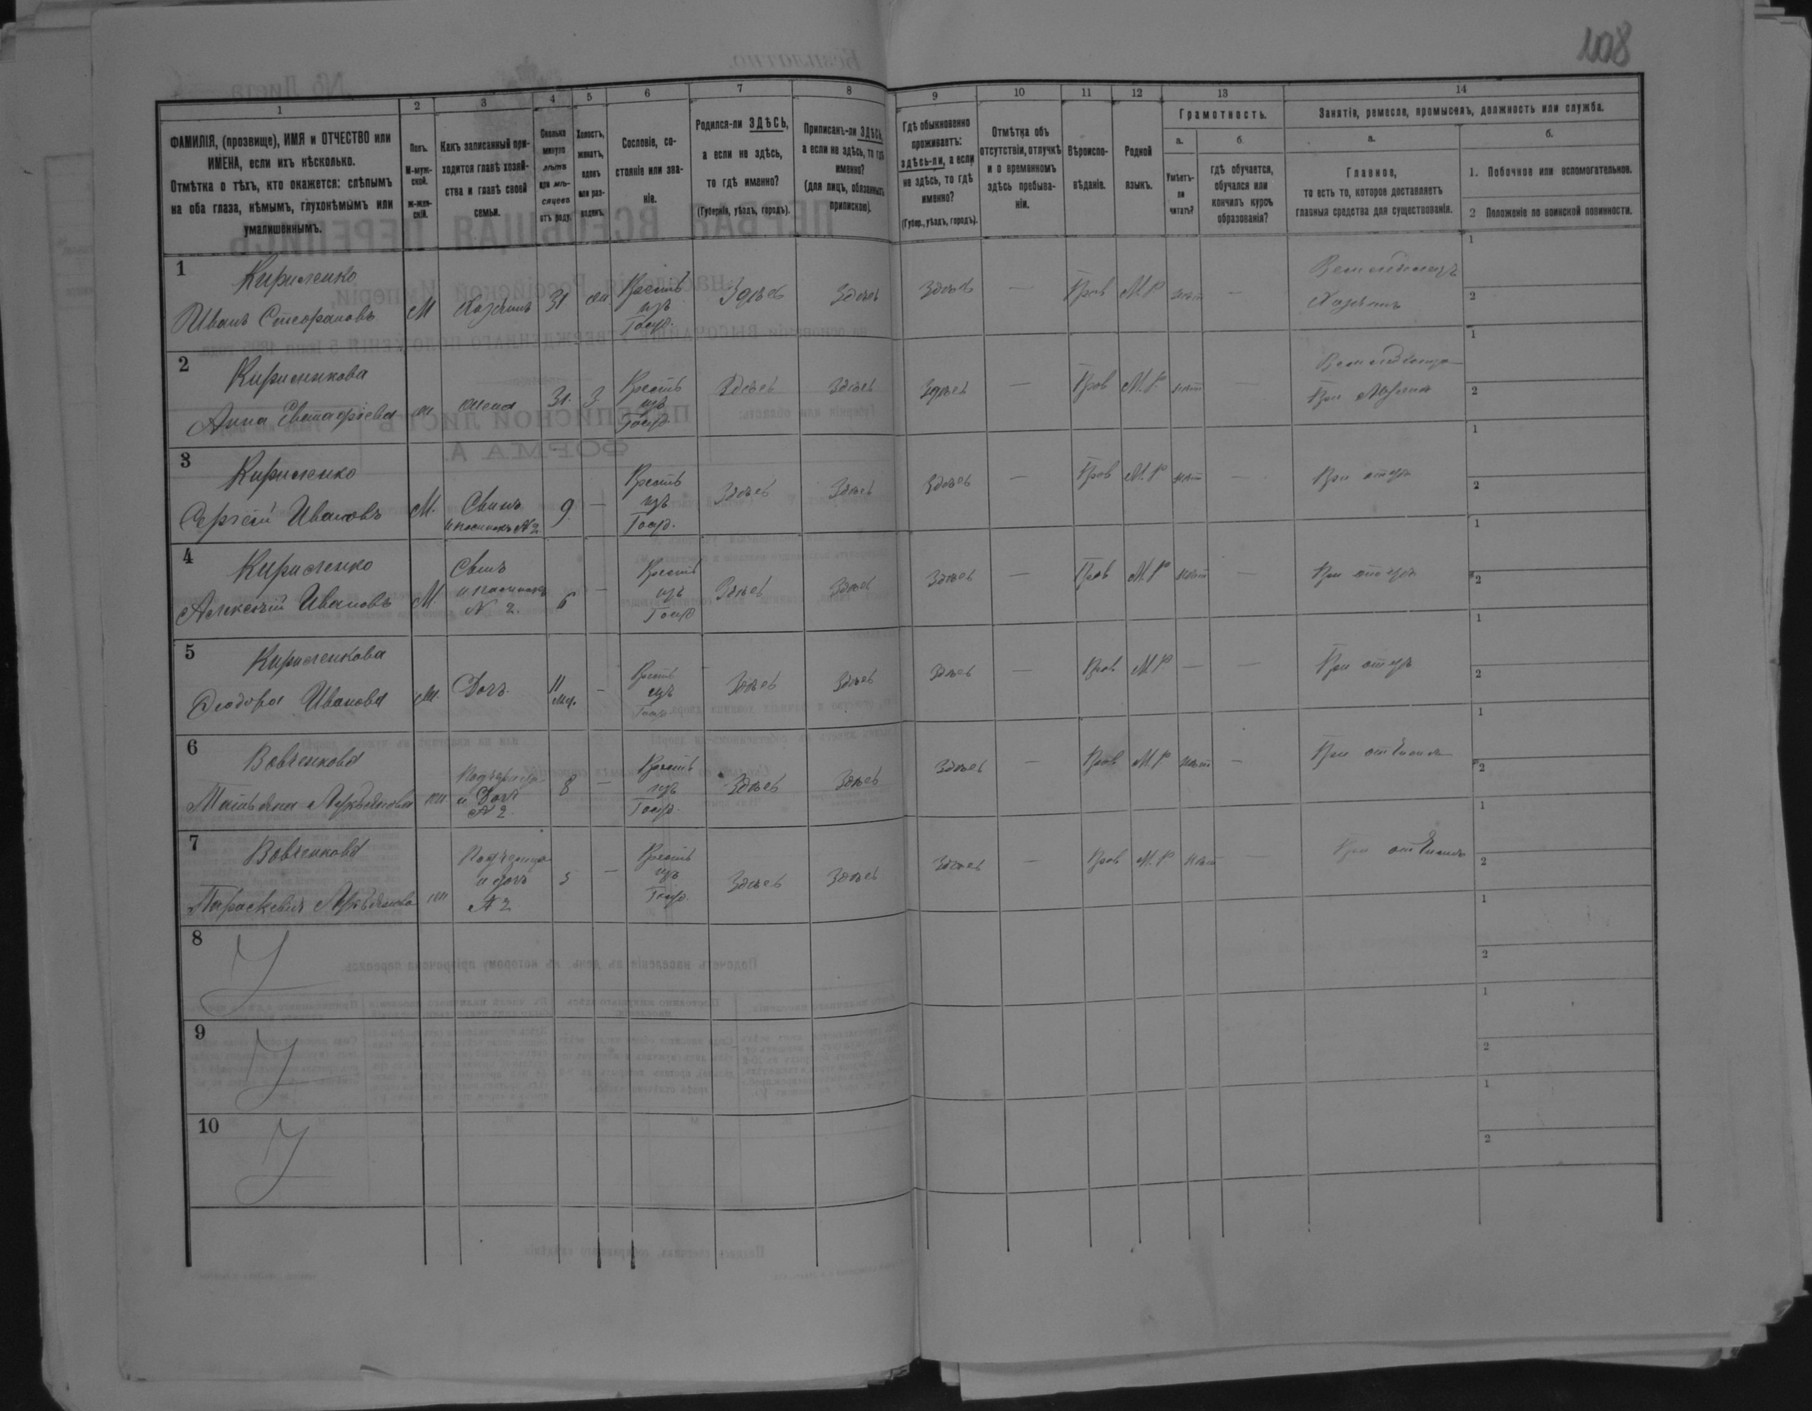 108
1
2
3
4
5
6
7
8
9
10
11
12
13
14
ФАМИЛІЯ, (прозвище), ИМЯ и ОТЧЕСТВО или
ИМЕНА, если ихъ нѣсколько.
Отмѣтка о тѣхъ, кто окажется: слѣпымъ
на оба глаза, нѣмымъ, глухонѣмымъ или
умалишеннымъ.
Полъ.
М-муж-
ской.
ж-жен-
скій.
Какъ записанный при-
ходится главѣ хозяй-
ства и главѣ своей
семьи.
Сколько
минуло
лѣтъ
или мѣ-
сяцевъ
отъ роду.
Холостъ,
женатъ,
вдовъ
или раз-
веденъ.
Сословіе, со-
стояніе или зва-
ніе.
Родился-ли ЗДѢСЬ,
а если не здѣсь,
то гдѣ именно?
(Губернія, уѣздъ, городъ).
Приписанъ-ли ЗДѢСЬ,
а если не здѣсь, то гдѣ
именно?
(для лицъ, обязанныхъ
припискою).
Гдѣ обыкновенно
проживаетъ:
здѣсь-ли, а если
не здѣсь, то гдѣ
именно?
(Губер., уѣздъ, городъ).
Отмѣтка объ
отсутствіи, отлучкѣ
и о временномъ
здѣсь пребыва-
ніи.
Вѣроиспо-
вѣданіе.
Родной
языкъ.
Грамотность.
а.
Умѣетъ-
ли
читать?
б.
гдѣ обучается,
обучался или
кончилъ курсъ
образованія?
Занятіе, ремесло, промыселъ, должность или служба.
а.
Главное,
то есть то, которое доставляетъ
главныя средства для существованія.
б.
1. Побочное или вспомогательное.
2 Положеніе по воинской повинности.
1
Кириленко
Иванъ Стефановъ
М
Хозяинъ
31
жен
Крестъ
изъ
Госуд.
Здѣсь
Здѣсь
Здѣсь
—
Прав
М.Р
нѣт
—
Хозяинъ
1
2
2
Кириленкова
Анна Евстафіева
ж
жена
31.
З
Крестъ
изъ
Госуд.
Здѣсь
Здѣсь
Здѣсь
—
Прав
М.Р
нѣт
—
При мужѣ
1
2
3
Кириленко
Сергѣй Ивановъ
М.
Сынъ
и пасынокъ № 2
9
—
Крестъ
изъ
Госуд.
Здѣсь
Здѣсь
Здѣсь
—
Прав
М.Р
нѣт
—
При отцѣ
1
2
4
Кириленко
Алексѣй Ивановъ
М.
Сынъ
и пасынокъ
№ 2.
6
—
Крестъ
изъ
Госуд
Здѣсь
Здѣсь
Здѣсь
—
Прав
М.Р
нѣт
—
При отцѣ
1
2
5
Кириленкова
Ѳеодора Иванова
ж
Дочь
11
мѣс.
—
Крестъ
изъ
Госуд
Здѣсь
Здѣсь
Здѣсь
—
Прав
М.Р.
—
—
При отцѣ
1
2
6
Вовченкова
ж
Падчерица
и Дочь
№ 2
8
—
Крестъ
изъ
Госуд.
Здѣсь
Здѣсь
Здѣсь
—
Прав
М.Р
нѣт
—
При отчимѣ
1
2
7
Вовченкова
ж
Падчерица
и дочь
№ 2
5
—
Крестъ
изъ
Госуд
Здѣсь
Здѣсь
Здѣсь
—
Прав
М.Р
нѣт
—
При отчимѣ
1
2
8
1
2
9
1
2
10
1
2